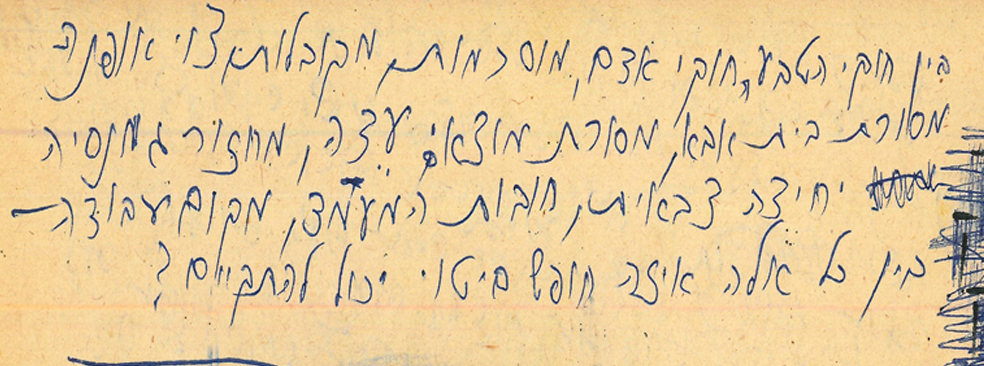 בין חוקי הטבע, חוקי אדם, מוסכמות מקובלות, צווי אופנה
מסורת בית אבא, מסורת מוצאי עדה, מחזור גמנסיה
יחידה צבאית, חובות המעמד, מקום עבודה –
בין כל אלה איזה חופש ביטוי יכול להתקיים?